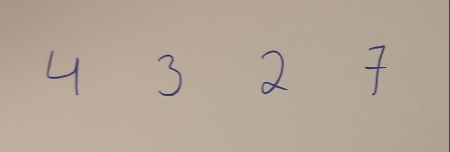 4 3 2 7